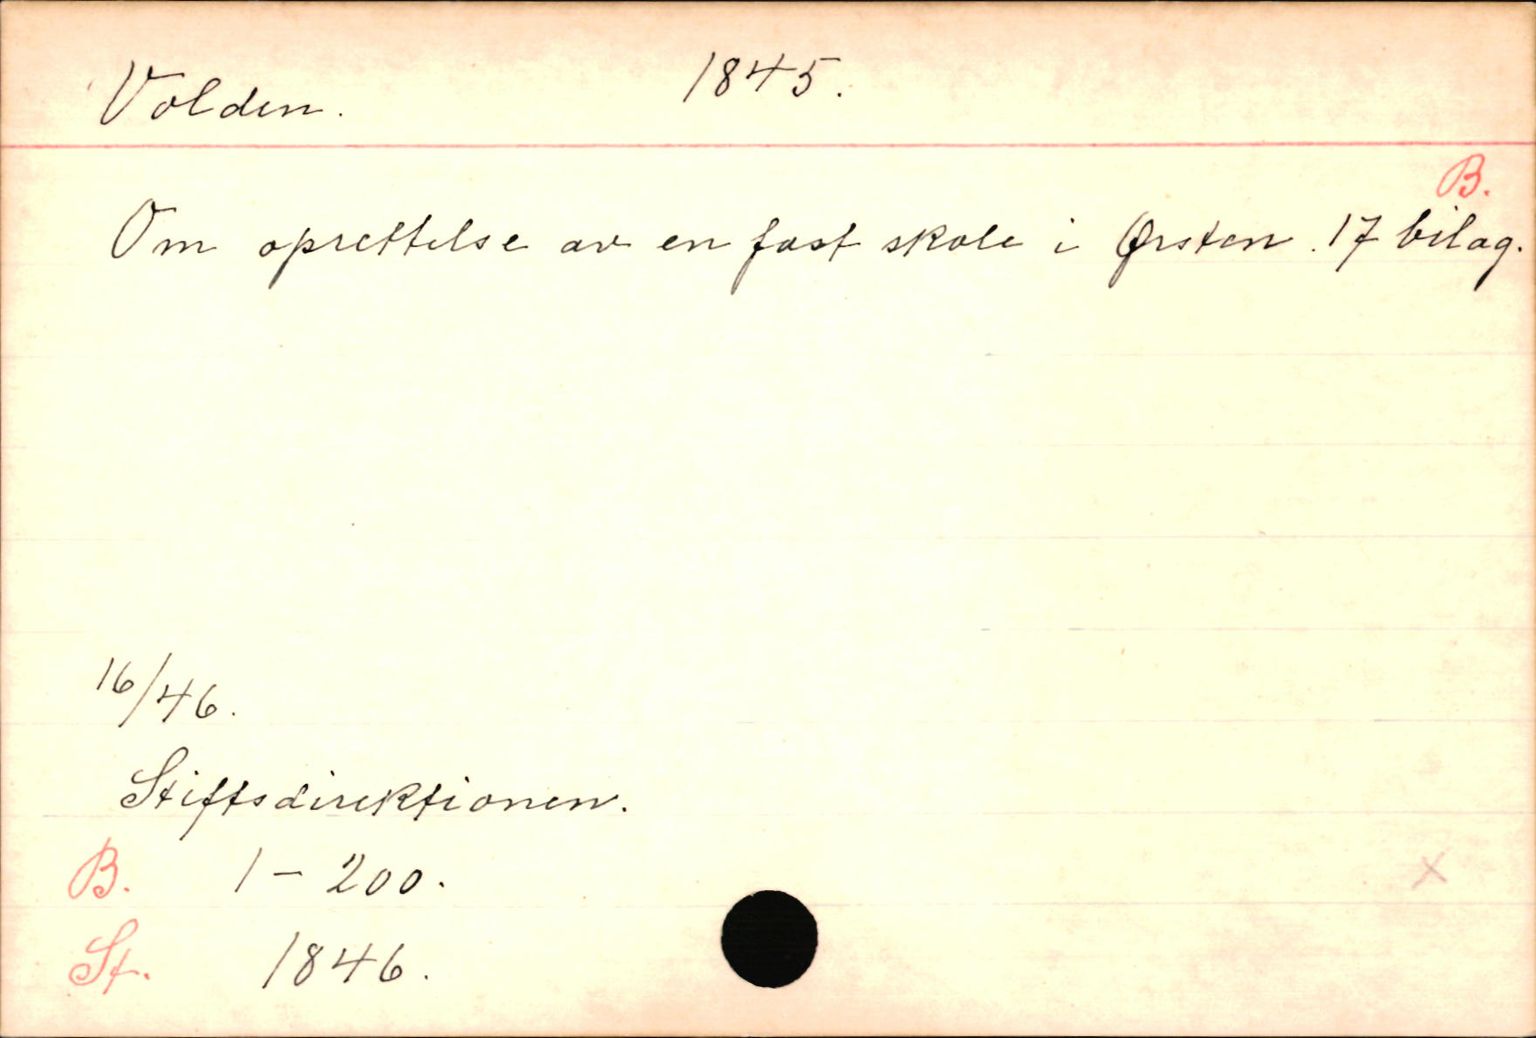 Volden. 1845.
B.
Om oprettelse av en fast skole i Ørsten. 17 bilag.
16/46.
Stiftsdirektionen.
B. 1 - 200.
St. 1846.
x